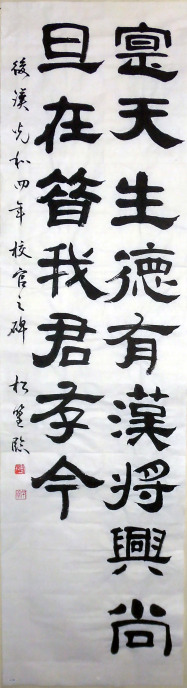 寔天生德有漢將興尚
旦在昔我君存今
後漢光和四年校官之碑 松 臨